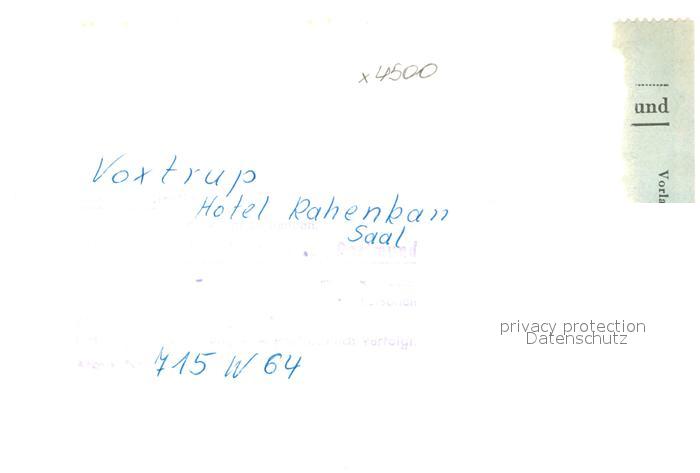 x 4500
und
Vorla
Voxtrup
Hotel Rahenkan
Saal
Dortmund
Personen
verfolgt.
privacy protection
Datenschutz
715 W 64